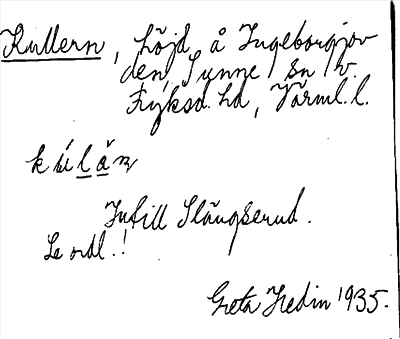 Kullern, höjd å Ingeborgsjor
den, Sunne sn v.
Fryksd. hd, Värml. l.
kúlän
Intill Slängserud.
Se ordl.!
Greta Hedin 1935.